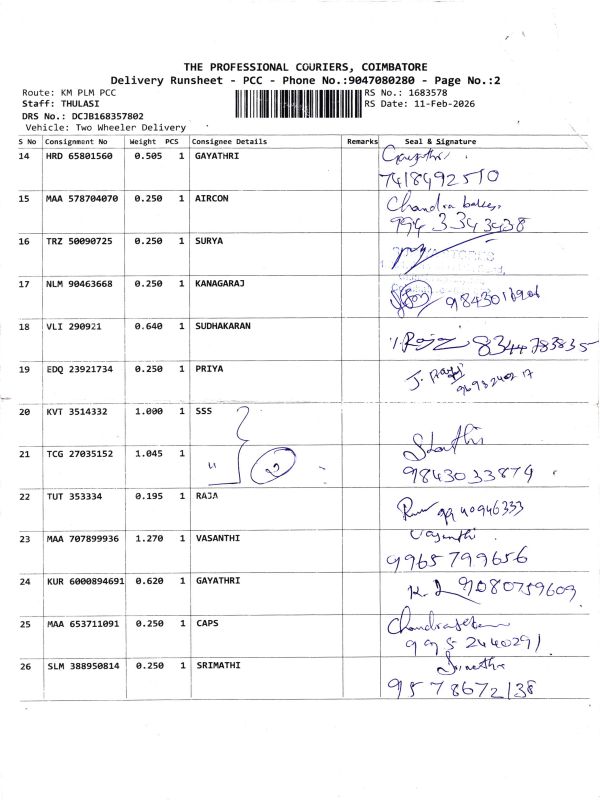 THE PROFESSIONAL COURIERS, COIMBATORE
Delivery Runsheet - PCC - Phone No.:9047080280 - Page No.:2
Route: KM PLM PCC
RS No.: 1683578
Staff: THULASI
RS Date: 11-Feb-2026
DRS No.: DCJB168357802
Vehicle: Two Wheeler Delivery
S No Consignment No Weight PCS Consignee Details Remarks Seal & Signature
14 HRD 65801560 0.505 1 GAYATHRI Gayathri
7418492510
15 MAA 578704070 0.250 1 AIRCON Chandra
994 3343438
16 TRZ 50090725 0.250 1 SURYA
17 NLM 90463668 0.250 1 KANAGARAJ
18 VLI 290921 0.640 1 SUDHAKARAN 8344783835
19 EDQ 23921734 0.250 1 PRIYA J.
20 KVT 3514332 1.000 1 SSS
21 TCG 27035152 1.045 1 " 2 Shanthi
9843033874
22 TUT 353334 0.195 1 RAJA 99 40946333
23 MAA 707899936 1.270 1 VASANTHI Vasanthi
9965799656
24 KUR 6000894691 0.620 1 GAYATHRI 9080759609
25 MAA 653711091 0.250 1 CAPS
995 2440291
26 SLM 388950814 0.250 1 SRIMATHI Srimathi
9578672138